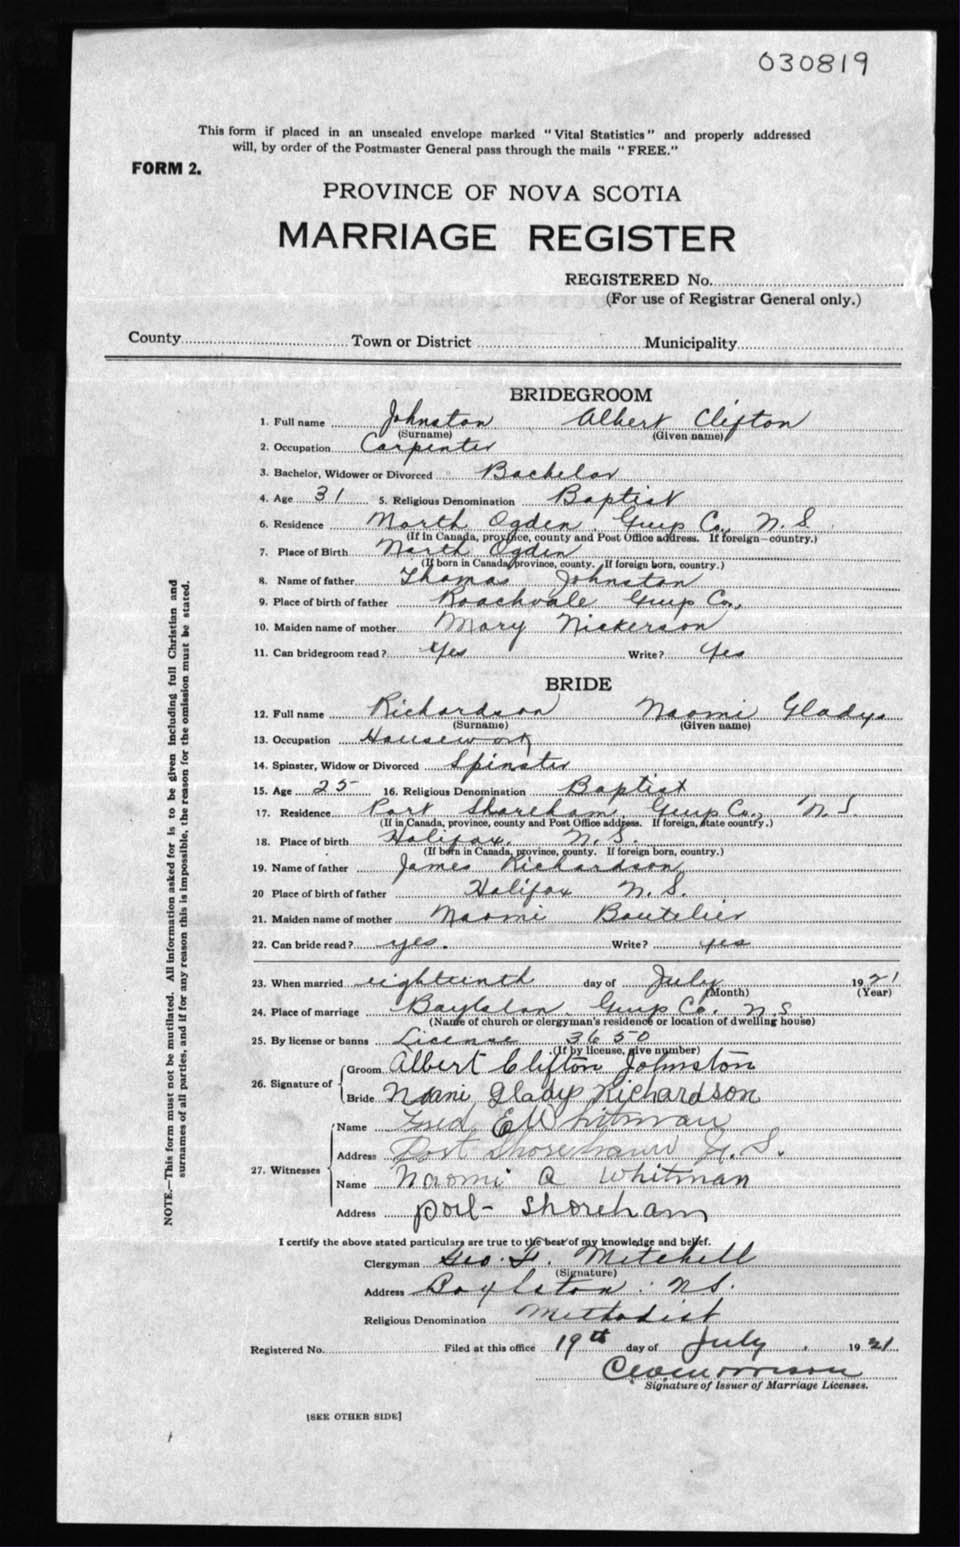 030819
This form if placed in an unsealed envelope marked "Vital Statistics" and properly addressed
will, by order of the Postmaster General pass through the mails "FREE."
FORM 2.
PROVINCE OF NOVA SCOTIA
MARRIAGE REGISTER
REGISTERED No.
(For use of Registrar General only.)
County Town or District Municipality
BRIDEGROOM
1. Full name Johnston Albert Clifton
(Surname) (Given name)
2. Occupation Carpenter
3. Bachelor, Widower or Divorced Bachelor
4. Age 31 5. Religious Denomination Baptist
6. Residence North Ogden Guys Co. N.S.
(If in Canada, province, county and Post Office address. If foreign—country.)
7. Place of Birth North Ogden
(If born in Canada, province, county. If foreign born, country.)
8. Name of father Thomas Johnston
9. Place of birth of father Roachvale Guys Co.,
10. Maiden name of mother Mary Nickerson
11. Can bridegroom read? Yes Write? Yes
BRIDE
12. Full name Richardson Naomi Gladys
(Surname) (Given name)
13. Occupation Housework
14. Spinster, Widow or Divorced Spinster
15. Age 25 16. Religious Denomination Baptist
17. Residence Port Shoreham, Guys Co., N.S.
(If in Canada, province, county and Post Office address. If foreign, state country.)
18. Place of birth Halifax, N.S.
(If born in Canada, province, county. If foreign born, country.)
19. Name of father James Richardson
20 Place of birth of father Halifax N.S.
21. Maiden name of mother Naomi Boutelier
22. Can bride read? yes. Write? yes
23. When married eighteenth day of July 1921
(Month) (Year)
24. Place of marriage Boylston Guys Co. N.S.
(Name of church or clergyman's residence or location of dwelling house)
25. By license or banns License 3650
(If by license, give number)
26. Signature of
Groom Albert Clifton Johnston
Bride Gladys Richardson
27. Witnesses
Name Fred E Whitman
Address Port Shoreham N.S.
Name Naomi A Whitman
Address port- Shoreham
I certify the above stated particulars are true to the best of my knowledge and belief.
Clergyman Geo. F. Mitchell
(Signature)
Address Boylston N.S.
Religious Denomination Methodist
Registered No. Filed at this office 19th day of July, 1921
Signature of Issuer of Marriage Licenses.
[SEE OTHER SIDE]
NOTE.—This form must not be mutilated. All information asked for is to be given including full Christian and
surnames of all parties, and if for any reason this is impossible, the reason for the omission must be stated.